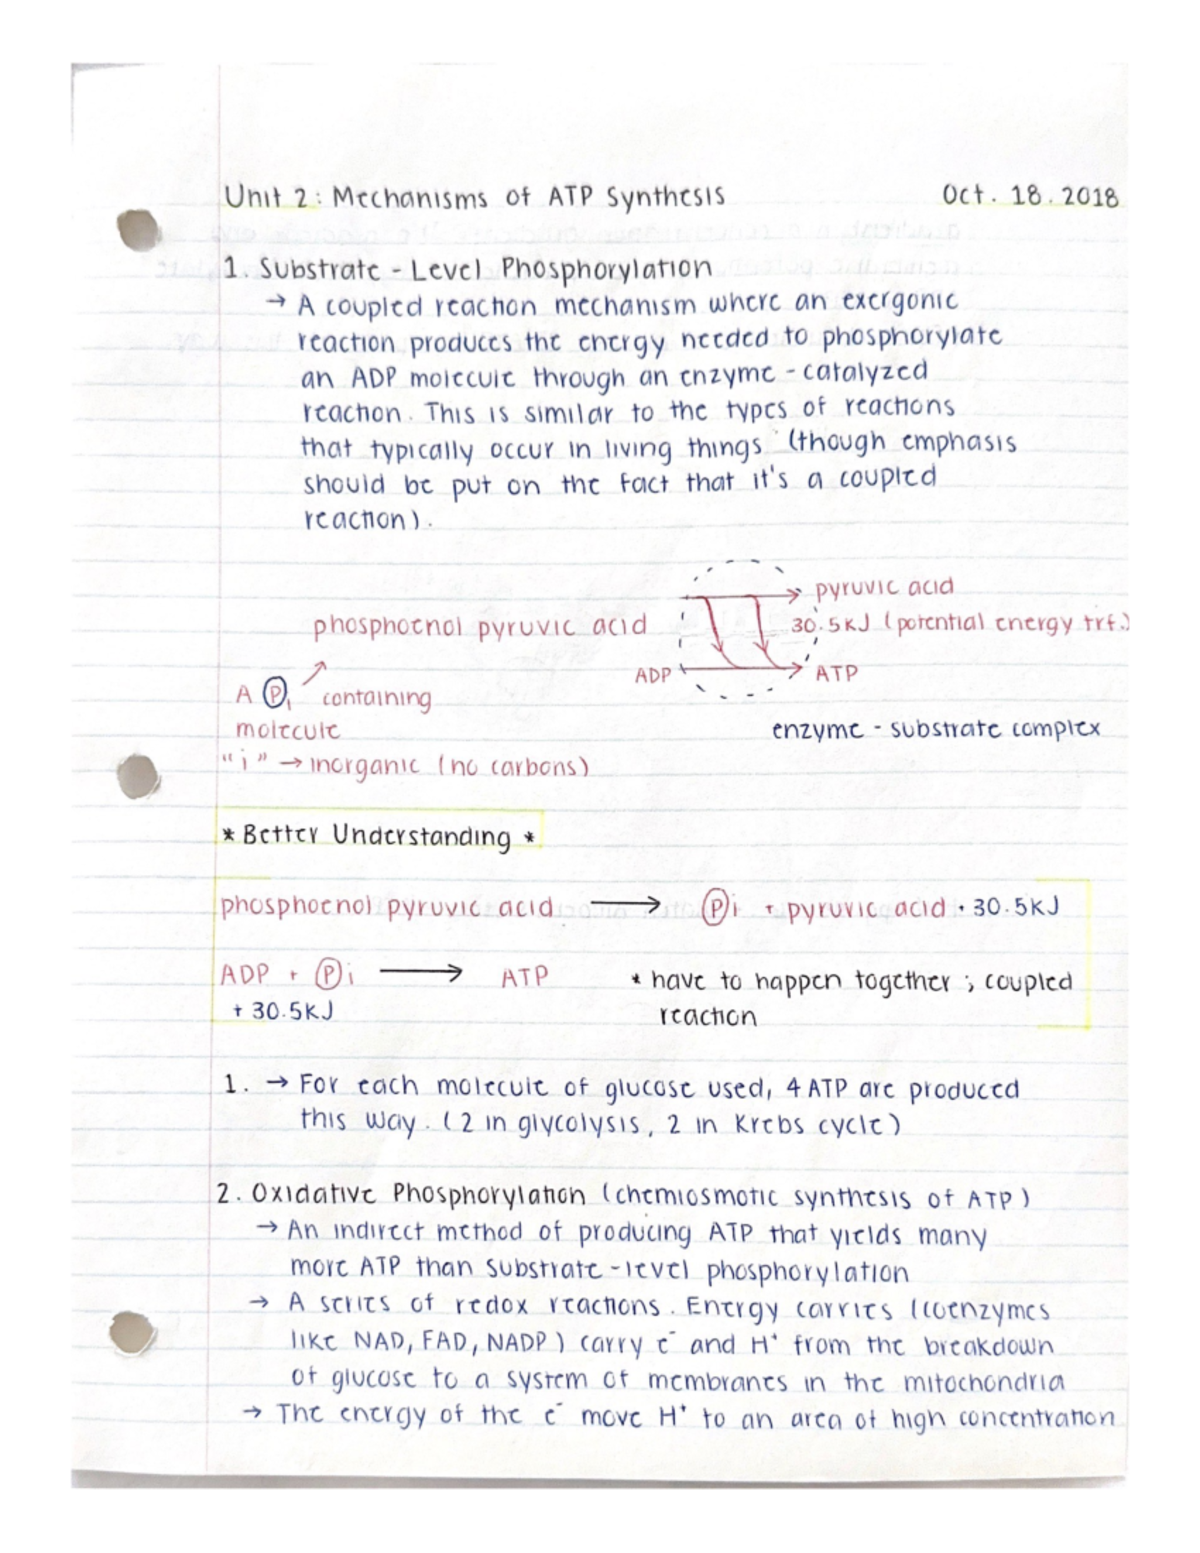 Unit 2: Mechanisms of ATP Synthesis Oct. 18. 2018
1. Substrate - Level Phosphorylation
→ A coupled reaction mechanism where an exergonic
reaction produces the energy needed to phosphorylate
an ADP molecule through an enzyme - catalyzed
reaction. This is similar to the types of reactions
that typically occur in living things (though emphasis
should be put on the fact that it's a coupled
reaction).
pyruvic acid
phosphoenol pyruvic acid 30.5KJ (potential energy trf.)
ADP ATP
A Ⓟi containing
molecule enzyme - substrate complex
"i" → inorganic (no carbons)
* Better Understanding *
phosphoenol pyruvic acid ⟶ Ⓟi + pyruvic acid + 30.5KJ
ADP + Ⓟi ⟶ ATP * have to happen together ; coupled
+ 30.5KJ reaction
1. → For each molecule of glucose used, 4 ATP are produced
this way. (2 in glycolysis, 2 in Krebs cycle)
2. Oxidative Phosphorylation (chemiosmotic synthesis of ATP)
→ An indirect method of producing ATP that yields many
more ATP than substrate-level phosphorylation
→ A series of redox reactions. Energy carries (coenzymes
like NAD, FAD, NADP) carry e⁻ and H⁺ from the breakdown
of glucose to a system of membranes in the mitochondria
→ The energy of the e⁻ move H⁺ to an area of high concentration